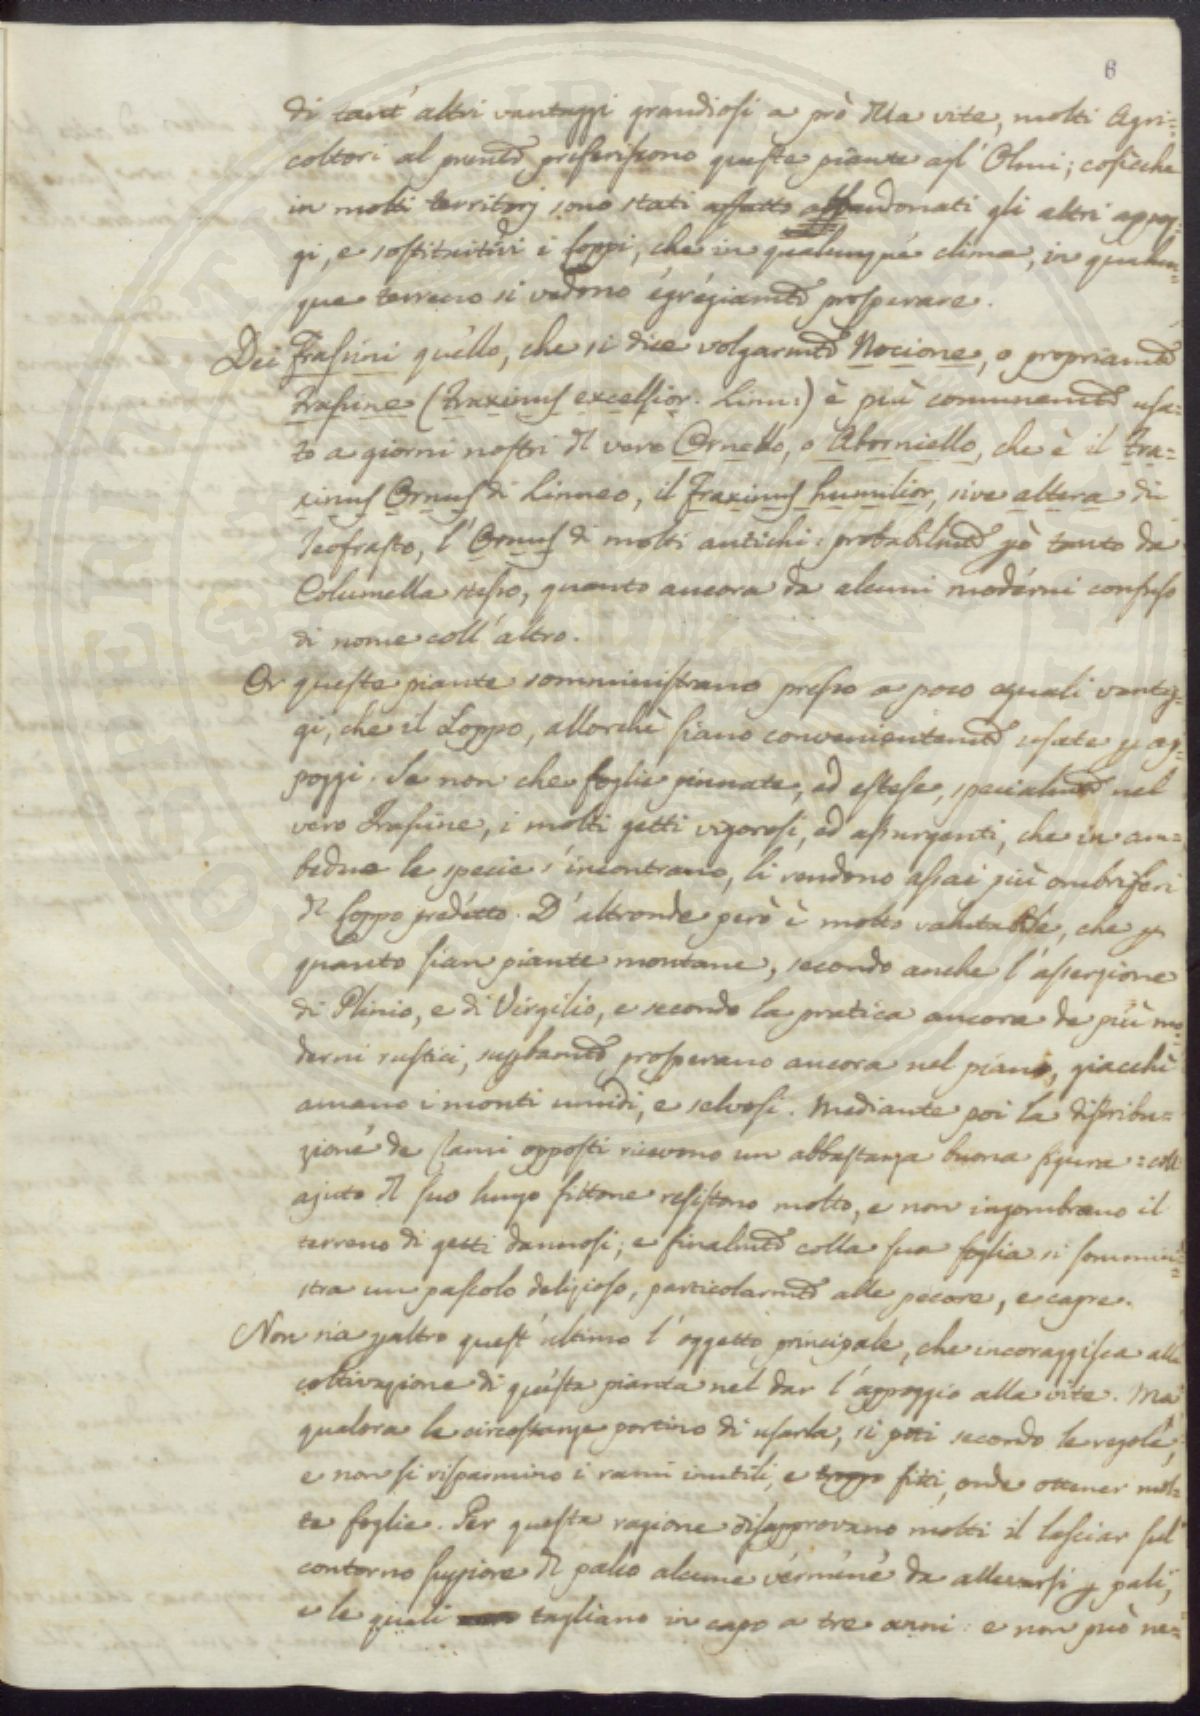 6
di tant' altri vantaggi grandiosi a prò dlla vite, molti Agri=
coltori al prentẽ preferiscono queste piante agl' Olmi; cosicche
in molti territorj sono stati affatto abbandonati gli altri appog=
gi, e sostituitivi i loppi, che in qualunque clima, in qualun=
que terreno si vedono egregiamtẽ prosperare.
Dei Frassini quello, che si dice volgarmtẽ Nocione, o propriamtẽ
Frassine (Fraxinus excelsior. Linn:) è più comunemtẽ usa=
to a giorni nostri dl vero Ornello, o Aborniello, che è il Fra=
xinus Ornus di Linneo, il Fraxinus humilior, sive altera di
Teofrasto, l' Ornus di molti antichi: probabilmtẽ pò tanto da
Columella stesso, quanto ancora da alcuni moderni confuso
di nome coll' altro.
Or queste piante somministrano presso a poco eguali vantag=
gi, che il Loppo, allorchè siano convenientemtẽ usate p ap=
poggi. Se non che foglie pinnate, ed estese, specialmtẽ nel
vero Frassine, i molti getti vigorosi, ed assurgenti, che in am=
bedue le specie s' incontrano, li rendono assai più ombriferi
dl loppo predetto. D' altronde però è molto valutabile, che p
quanto sian piante montane, secondo anche l' asserzione
di Plinio, e di Virgilio, e secondo la pratica ancora de più mo=
derni rustici, suglbamtẽ prosperano ancora nel piano, giacchè
amano i monti umidi, e selvosi. Mediante poi la distribu=
zione de rami opposti ricevono un abbastanza buona figura = coll
ajuto dl suo lungo fittone resistono molto, e non ingombrano il
terreno di getti dannosi; e finalmtẽ colla sua foglia si sommini=
stra un pascolo delizioso, particolarmtẽ alle pecore, e capre.
Non sia paltro quest' ultimo l' oggetto principale, che incoraggisca alla
coltivazione di questa pianta nel dar l' appoggio alla vite. Ma
qualora le circostanze portino di usarla, si poti secondo le regole,
e non si risparmino i rami inutili, e troppo fitti, onde ottener mol=
te foglie. Per questa ragione disapprovano molti il lasciar sul
contorno suppiore dl palco alcune vermene da allevarsi p pali,
e le quali tagliano in capo a tre anni: e non può ne=